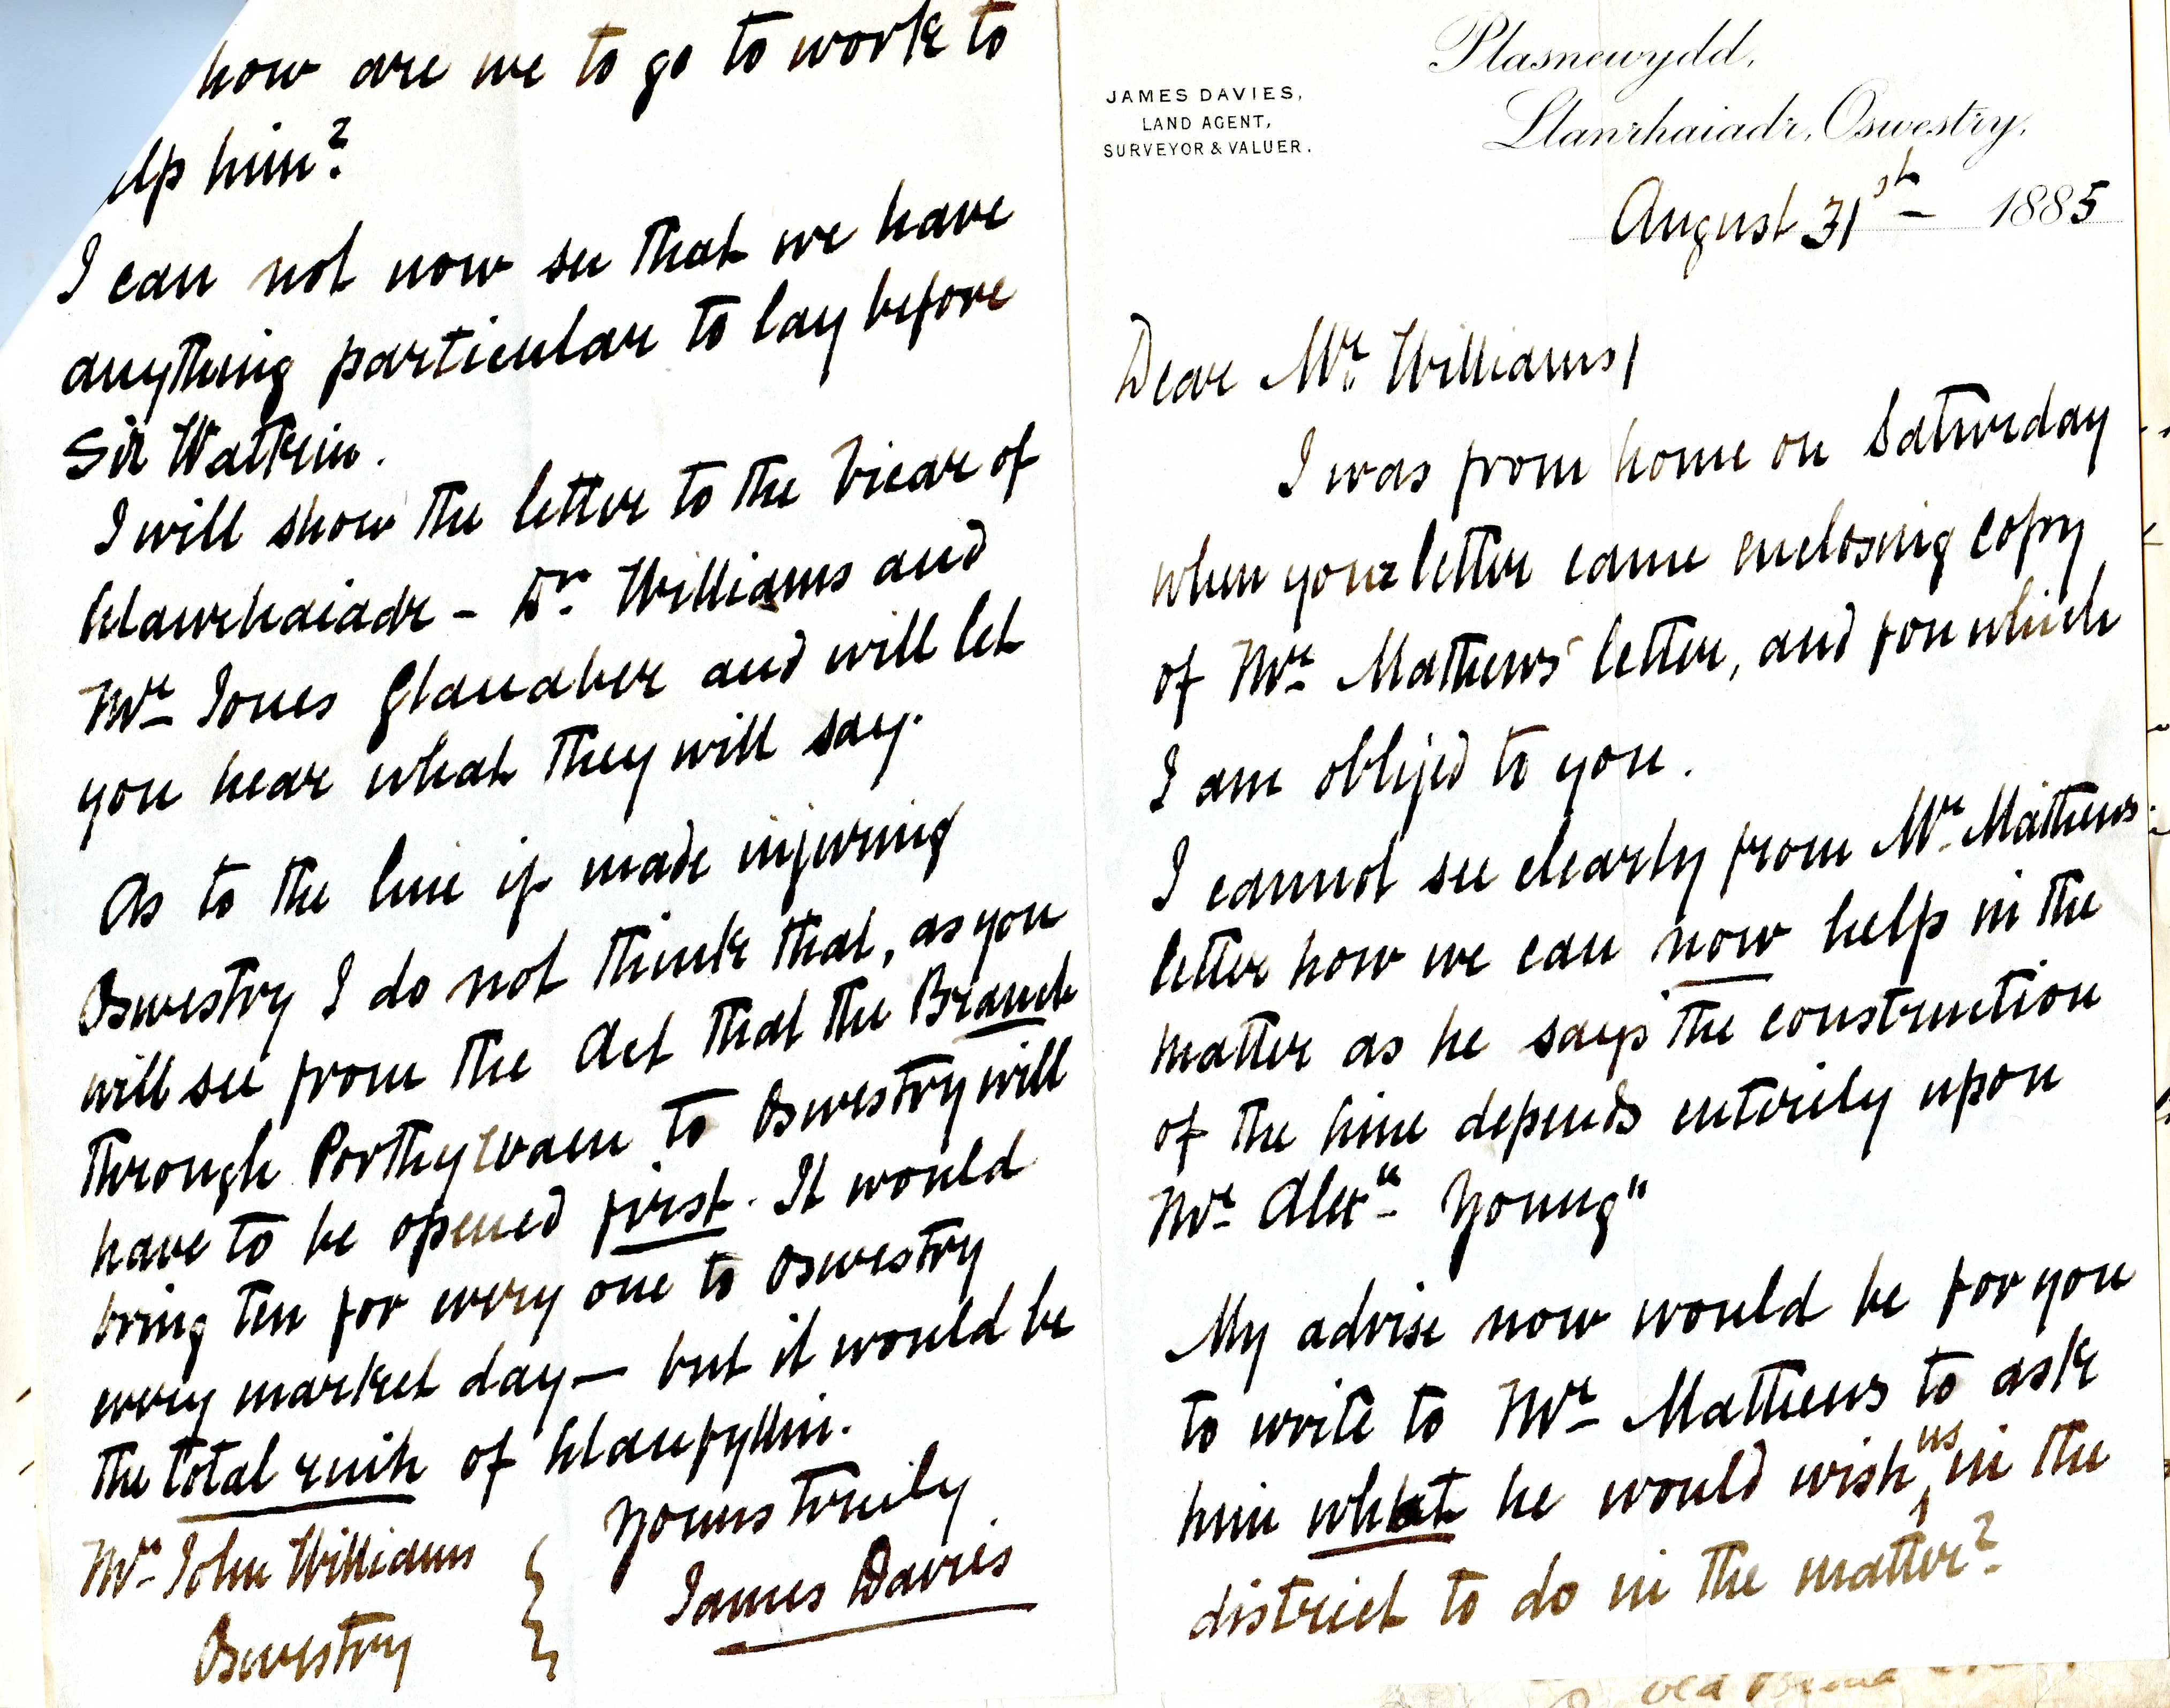 JAMES DAVIES,
LAND AGENT,
SURVEYOR & VALUER.
Plasnewydd,
Llanrhaiadr, Oswestry,
August 31st 1885
Dear Mr. Williams/
I was from home on Saturday
when your letter came enclosing copy
of Mr Mathews' letter, and for which
I am obliged to you.
I cannot see clearly from Mr. Mathews
letter how we can now help in the
matter as he says "the construction
of the line depends entirely upon
Mr Alexr Young"
My advise now would be for you
to write to Mr Mathews to ask
him what he would wish us in the
district to do in the matter?
how are we to go to work to
elp him?
I can not now see that we have
anything particular to lay before
Sir Watkin.
I will show the letter to the Vicar of
Llanrhaiadr - Dr. Williams and
Mr Jones Glanaber and will let
you hear what they will say.
As to the line if made injuring
Oswestry I do not think that, as you
will see from the Act that the Branch
through Porthywaen to Oswestry will
have to be opened first. It would
bring ten for every one to Oswestry
every market day — but it would be
the total ruin of Llanfyllin.
Yours truly
James Davies
Mr John Williams
Oswestry